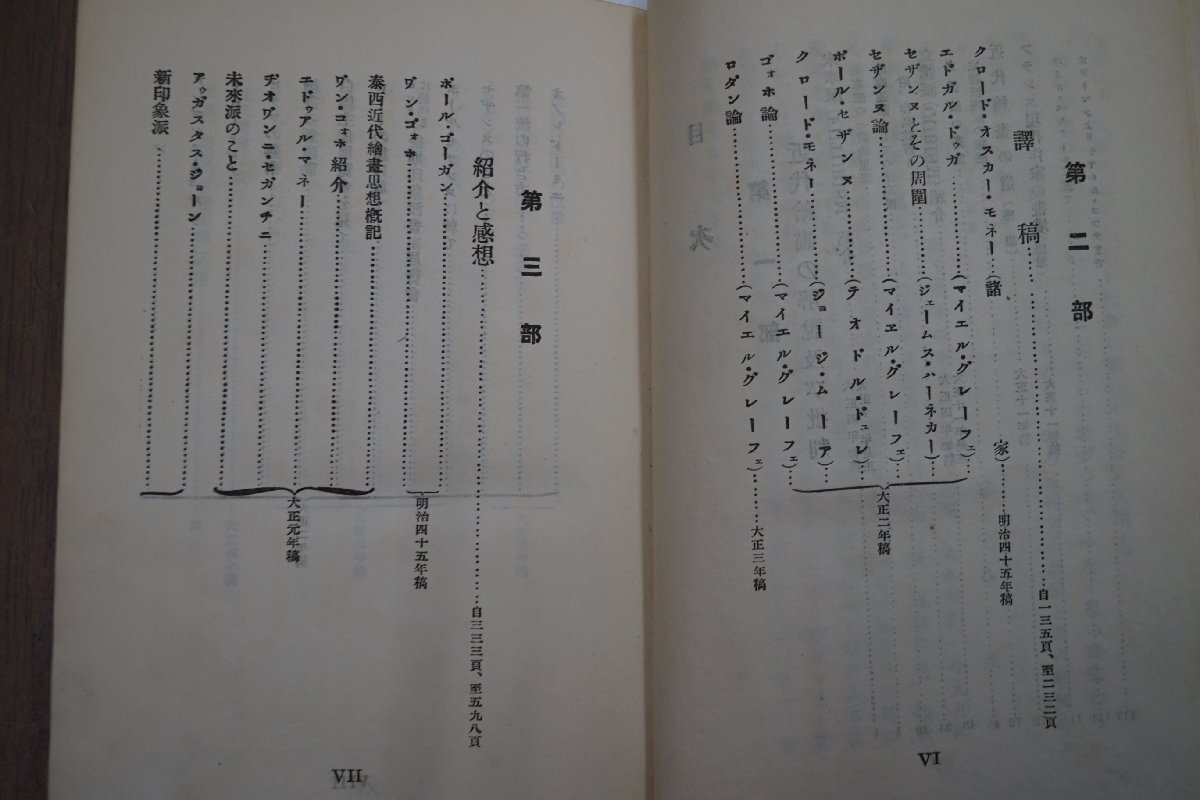 第二部
譯稿……自一三五頁、至二三二頁
クロード・オスカー・モネー……(諸家)……明治四十五年稿
エドガル・ドゥガ……(マイエル・グレーフェ)……
セザンヌとその周圍……(ジェームス・ハーネカー)……
セザンヌ論……(マイエル・グレーフェ)……
ポール・セザンヌ……(テオドル・ドュレ)……
クロード・モネー……(ジョージ・ムーア)……
ゴォホ論……(マイエル・グレーフェ)……
大正二年稿
ロダン論……(マイエル・グレーフェ)……大正三年稿
VI
第三部
紹介と感想……自三三三頁、至五九八頁
ポール・ゴーガン……
ヷン・ゴォホ……
明治四十五年稿
泰西近代繪畫思想概記……
ヷン・コォホ紹介……
エドゥアル・マネー……
ヂオワンニ・セガンチニ……
未來派のこと……
大正元年稿
アゥガスタス・ジョーン……
新印象派……
VII